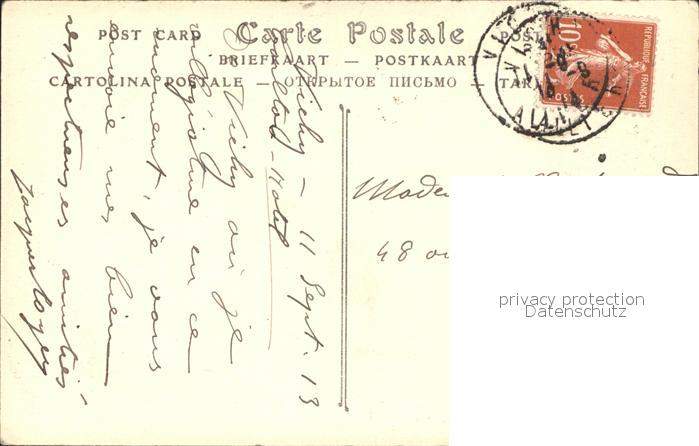 POST CARD Carte Postale POST
BRIEFKAART — POSTKAART
CARTOLINA POSTALE — ОТКРЫТОЕ ПИСЬМО — TAR
VICHY
ALLIER
10
REPUBLIQUE FRANÇAISE
POSTES
Vichy — 11 Sept. 13
Carlton-Hotel
Vichy où je
en ce
moment, je vous
envoie mes bien
respectueuses amitiés
48
privacy protection
Datenschutz